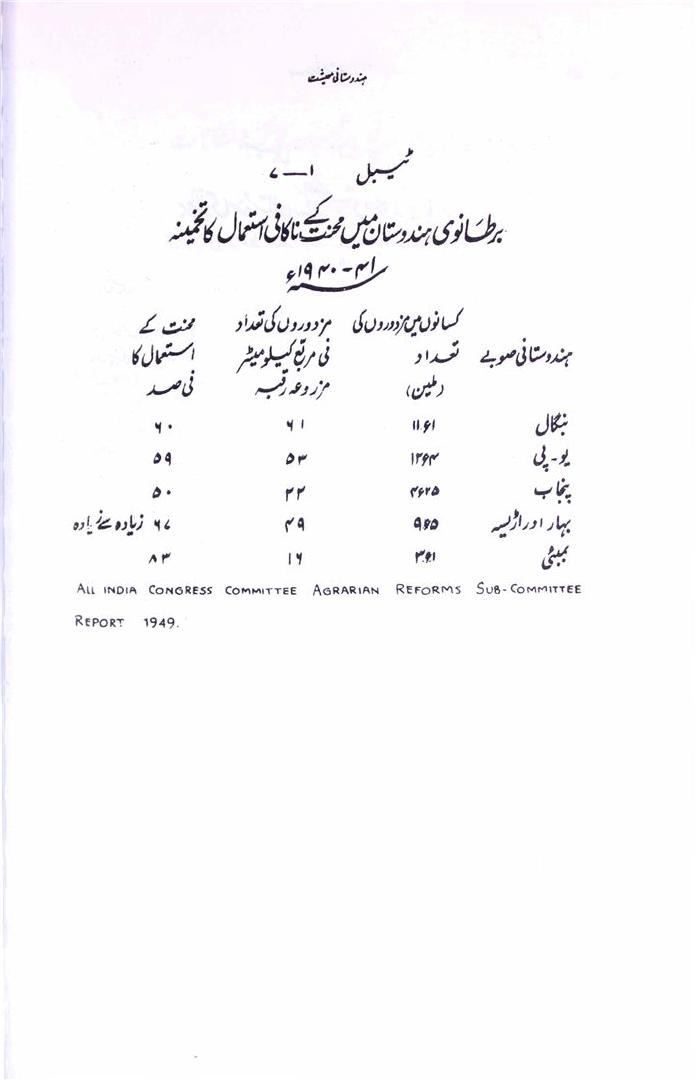 ہندوستانی معیشت
ٹیبل ۱—۷
برطانوی ہندوستان میں محنت کے ناکافی استعمال کا تخمینہ
۱۹۴۰-۴۱ء
ہندوستانی صوبے کسانوں میں مزدوروں کی تعداد (ملین) مزدوروں کی تعداد فی مربع کیلومیٹر مزروعہ رقبہ محنت کے استعمال کا فی صد
بنگال ۱۱ء۶۱ ۶۱ ۶۰
یو-پی ۱۲ء۶۴ ۵۳ ۵۹
پنجاب ۴ء۲۵ ۲۲ ۵۰
بہار اور اڑیسہ ۹ء۶۵ ۴۹ ۶۷ زیادہ سے زیادہ
بمبئی ۳ء۶۱ ۱۶ ۸۳
ALL INDIA CONGRESS COMMITTEE AGRARIAN REFORMS SUB-COMMITTEE
REPORT 1949.